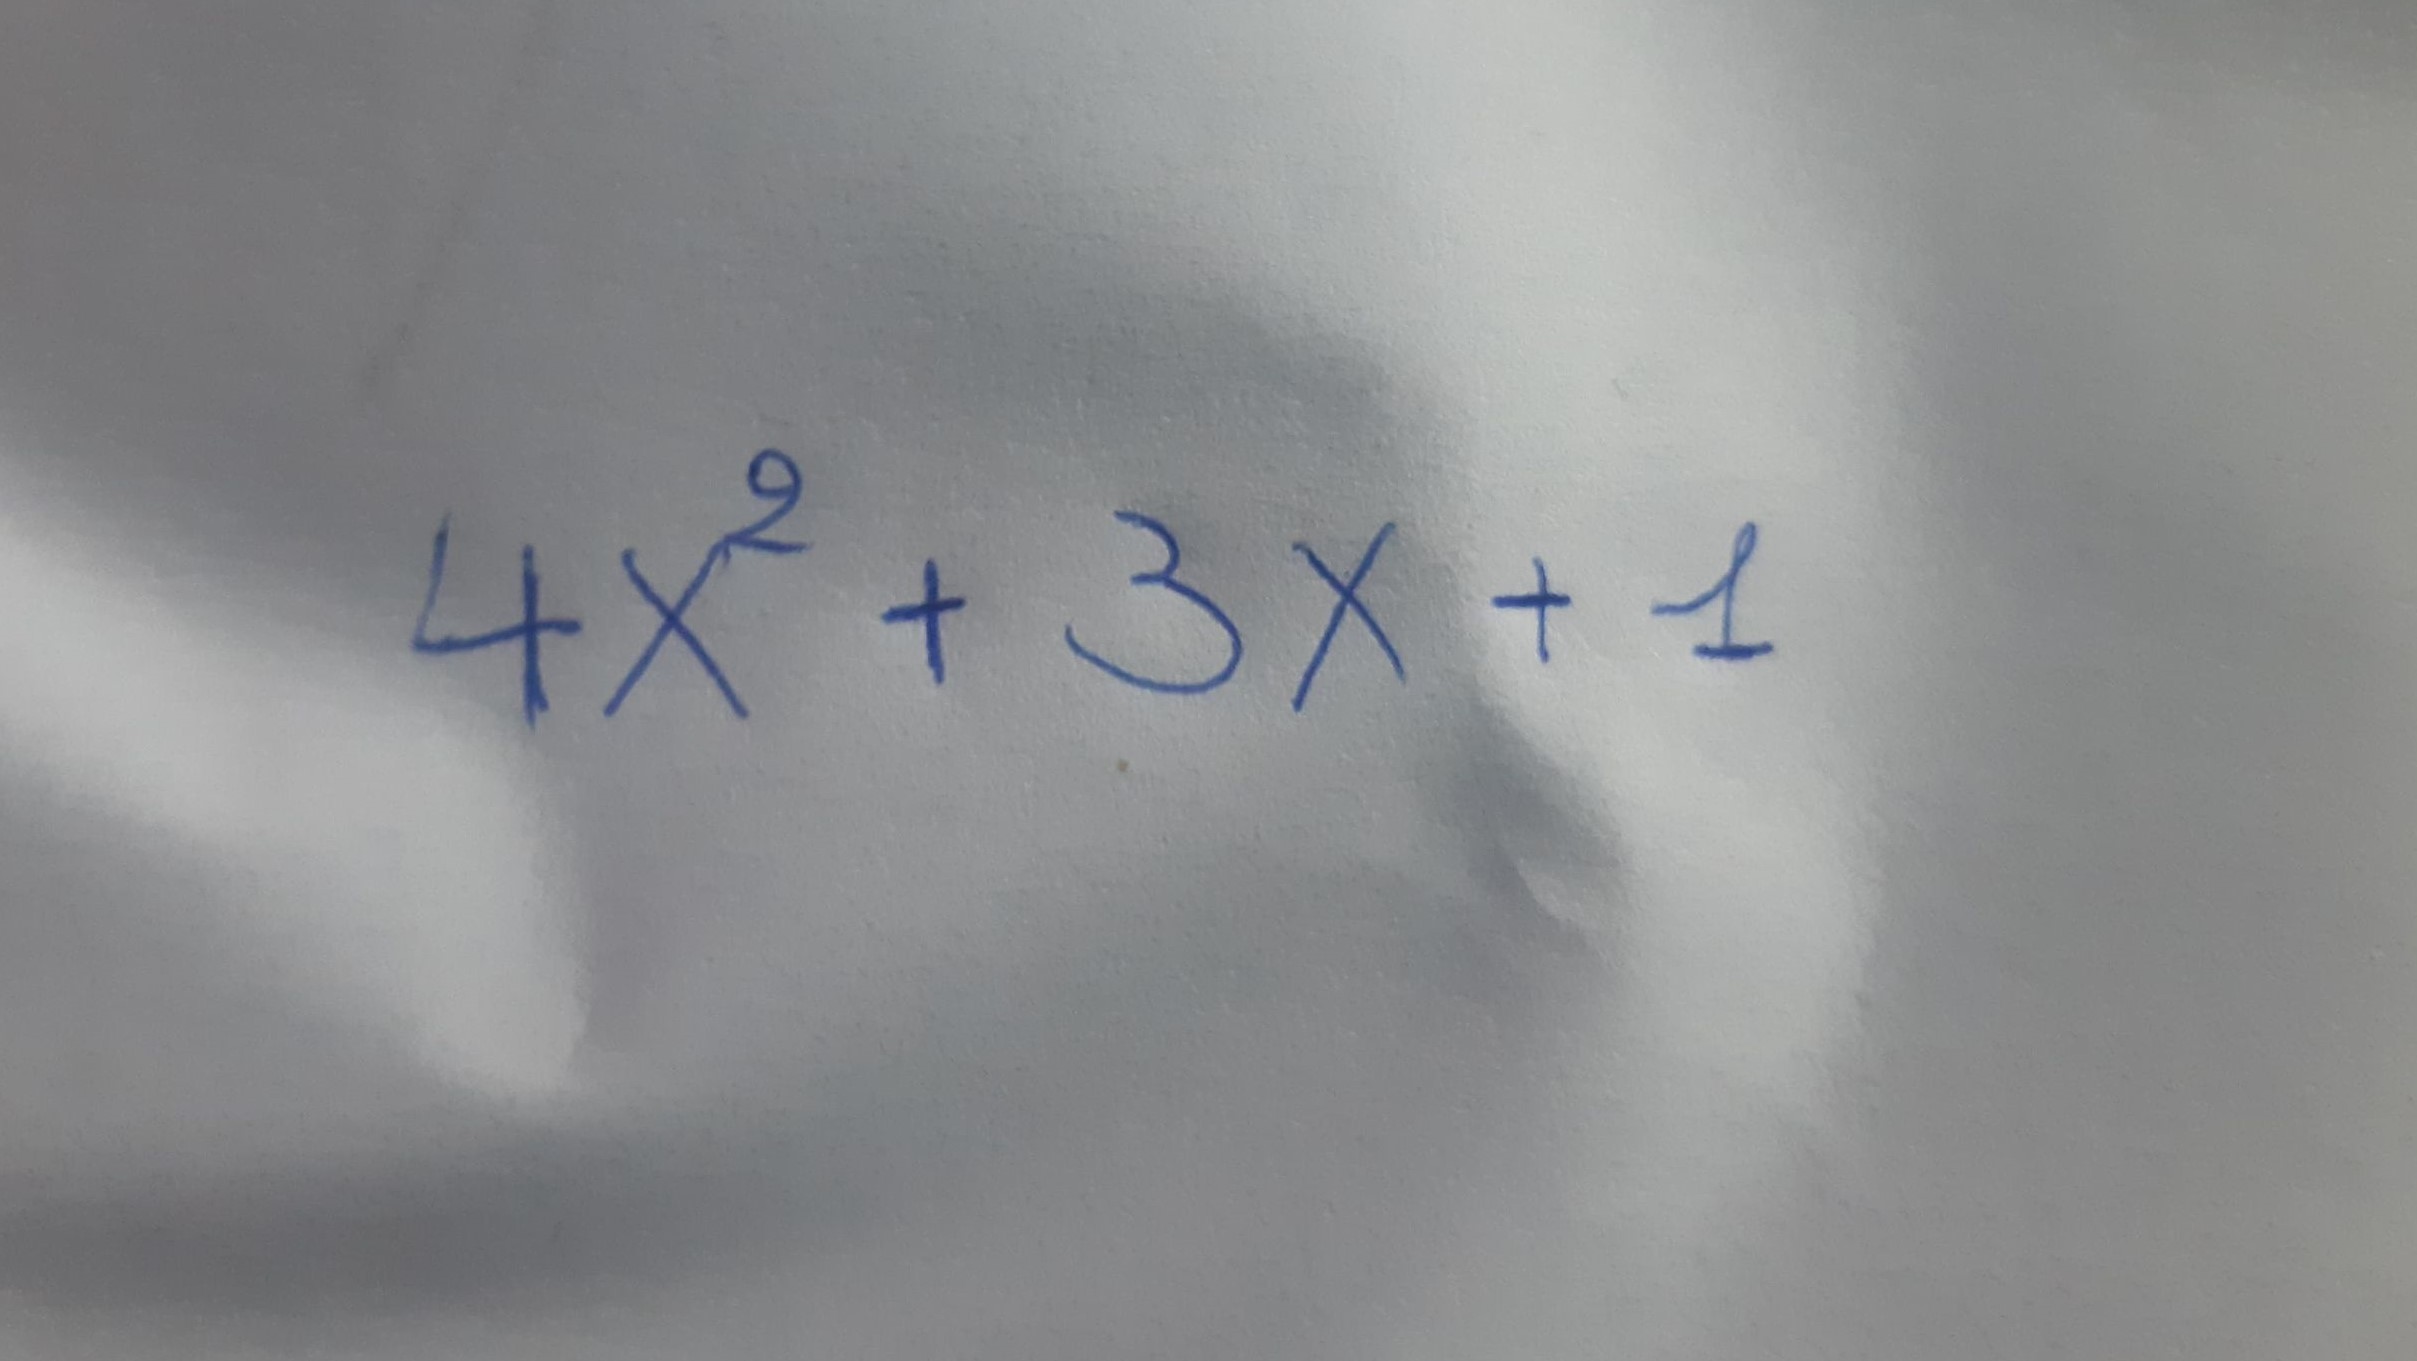 4x² + 3x + 1